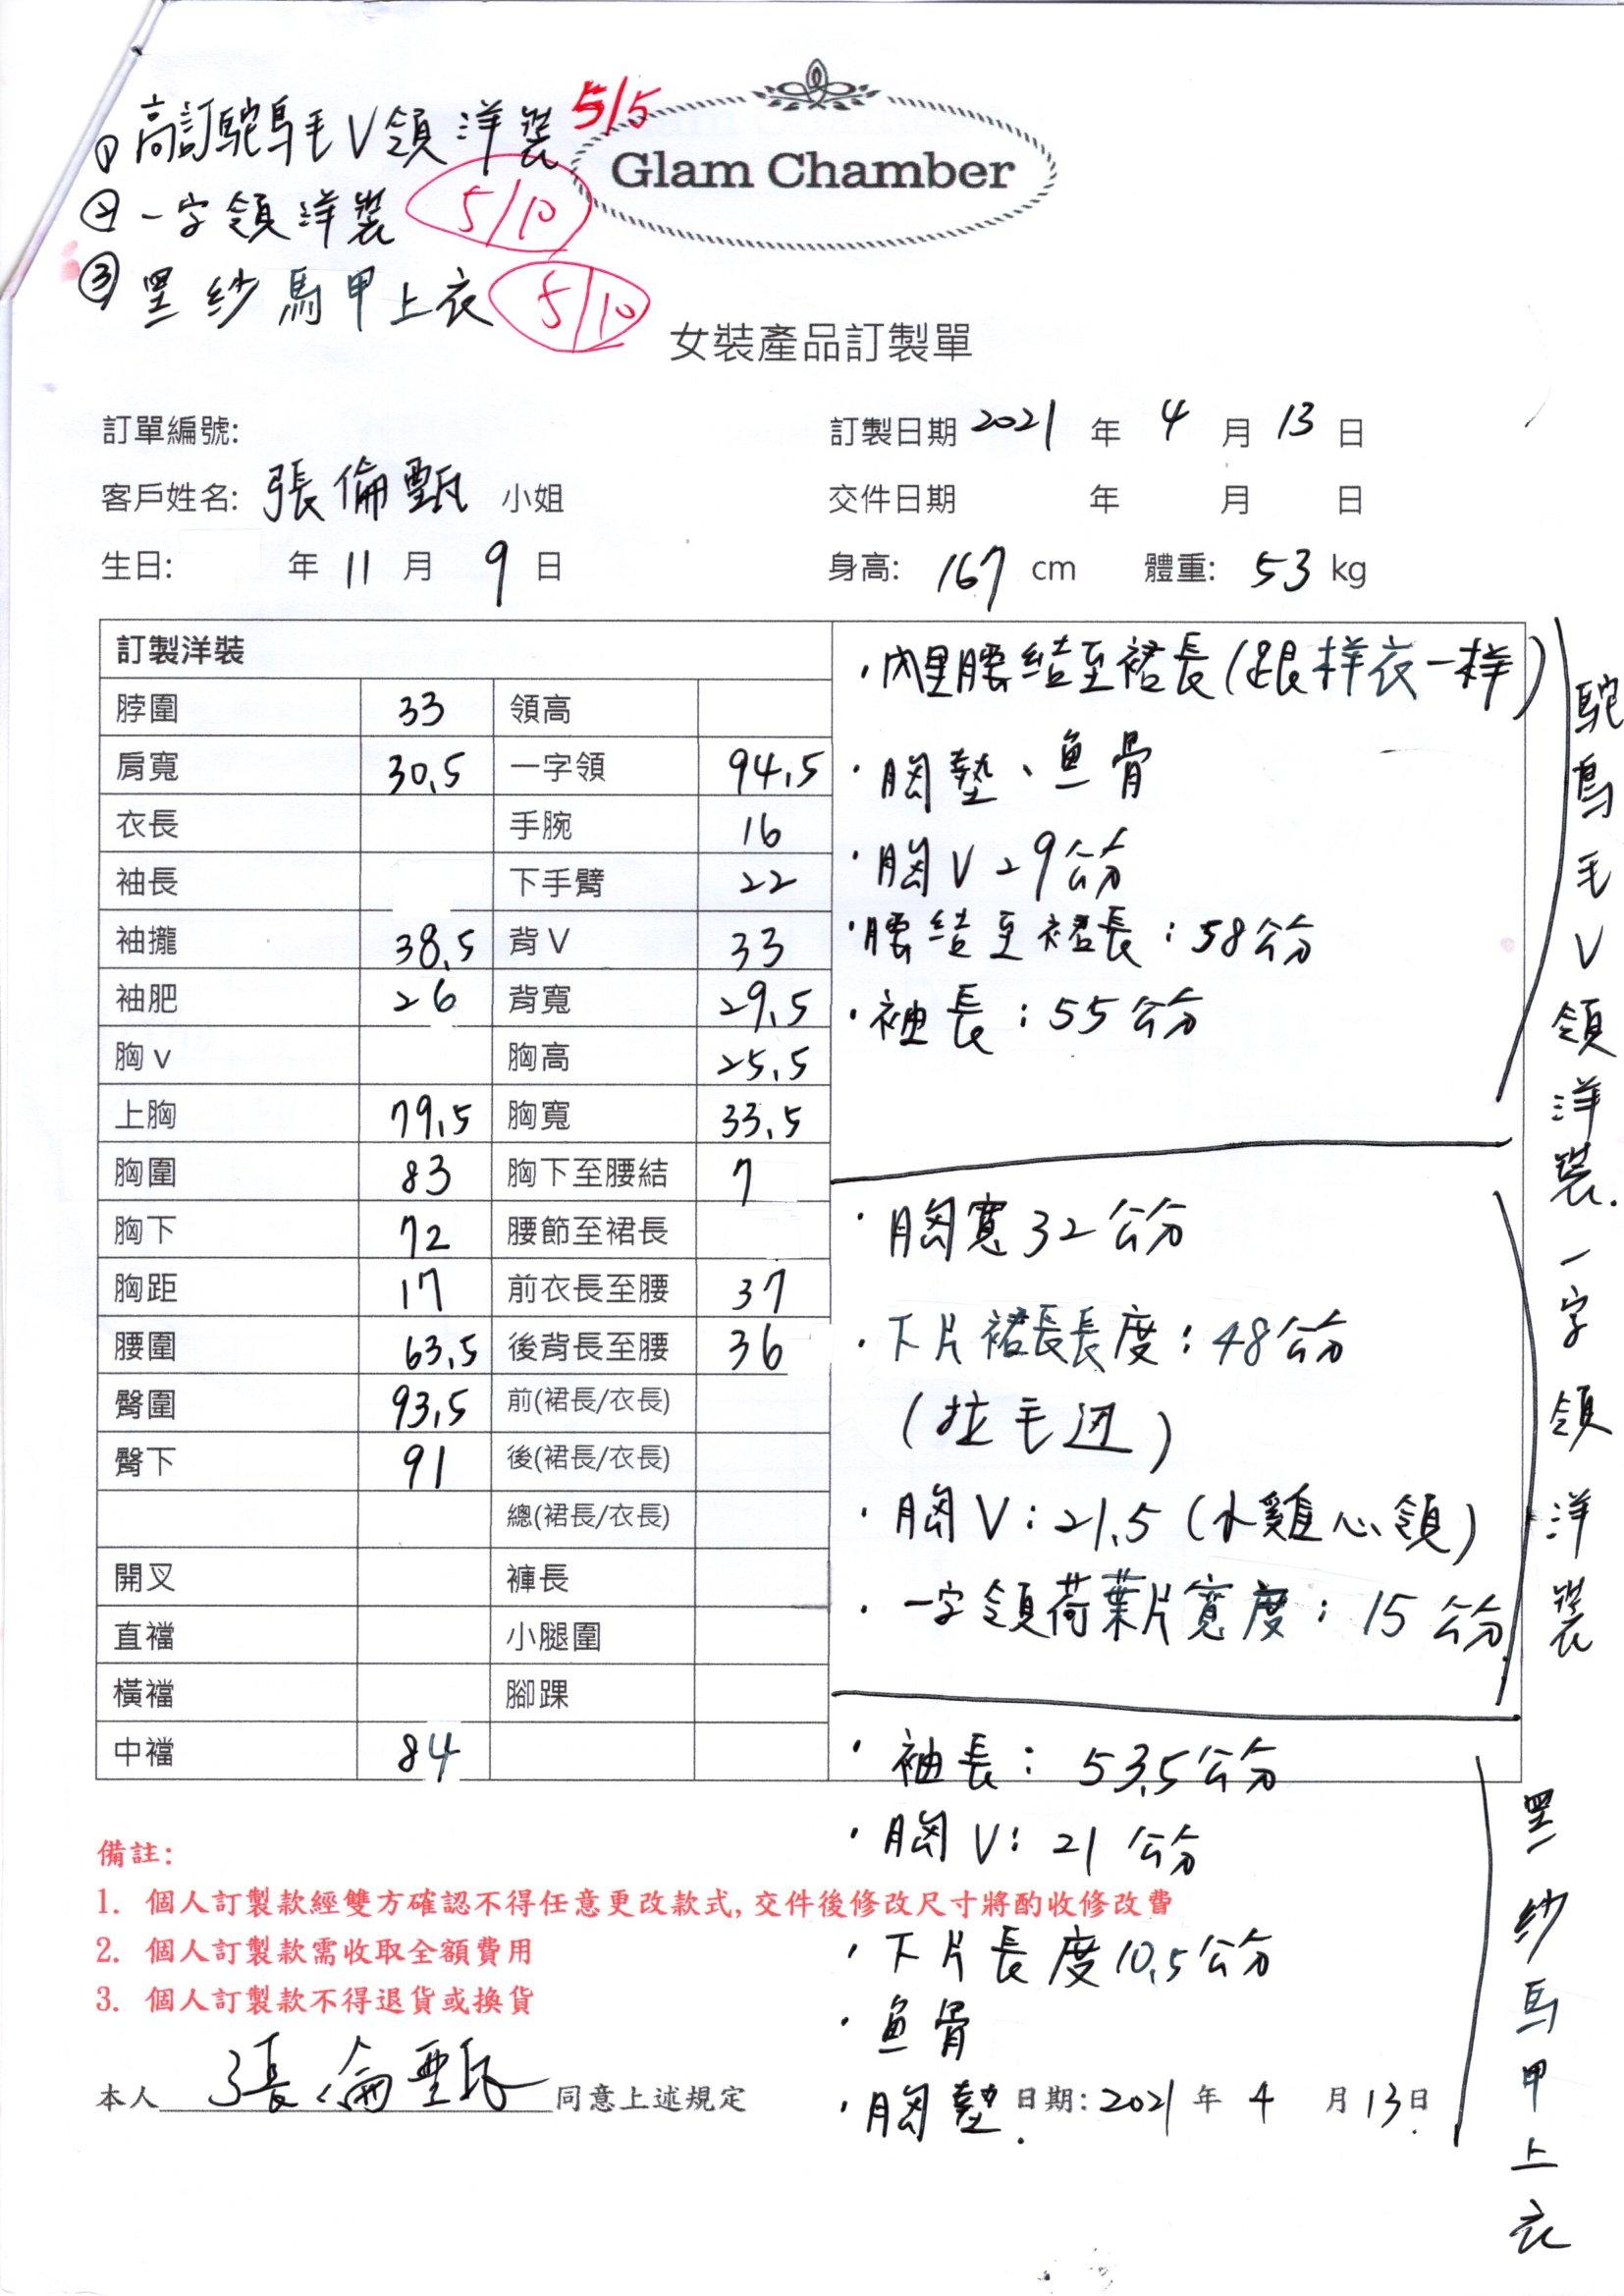 ①高訂鴕鳥毛V領洋裝 5/5
Glam Chamber
②一字領洋裝 5/10
③黑紗馬甲上衣 5/10
女裝產品訂製單
訂單編號:
訂製日期 2021 年 4 月 13 日
客戶姓名: 張倫甄 小姐
交件日期 年 月 日
生日: 年 11 月 9 日
身高: 167 cm 體重: 53 kg
訂製洋裝
脖圍 33 領高
肩寬 30.5 一字領 94.5
衣長 手腕 16
袖長 下手臂 22
袖攏 38.5 背V 33
袖肥 26 背寬 29.5
胸v 胸高 25.5
上胸 79.5 胸寬 33.5
胸圍 83 胸下至腰結 7
胸下 72 腰節至裙長
胸距 17 前衣長至腰 37
腰圍 63.5 後背長至腰 36
臀圍 93.5 前(裙長/衣長)
臀下 91 後(裙長/衣長)
總(裙長/衣長)
開叉 褲長
直襠 小腿圍
橫襠 腳踝
中襠 84
·內里腰结至裙長(跟样衣一样)
·胸墊、魚骨
·胸V 29公分
·腰结至裙長:58公分
·袖長:55公分
鴕鳥毛V領洋裝.
·胸寬32公分
·下片裙長長度:48公分
(拉毛边)
·胸V:21.5(水雞心領)
·一字領荷葉片寬度:15公分
一字領洋裝
·袖長:53.5公分
·胸V:21公分
·下片長度10.5公分
·魚骨
·胸墊.
黑紗馬甲上衣
備註:
1. 個人訂製款經雙方確認不得任意更改款式,交件後修改尺寸將酌收修改費
2. 個人訂製款需收取全額費用
3. 個人訂製款不得退貨或換貨
本人 張倫甄 同意上述規定
日期: 2021 年 4 月 13 日